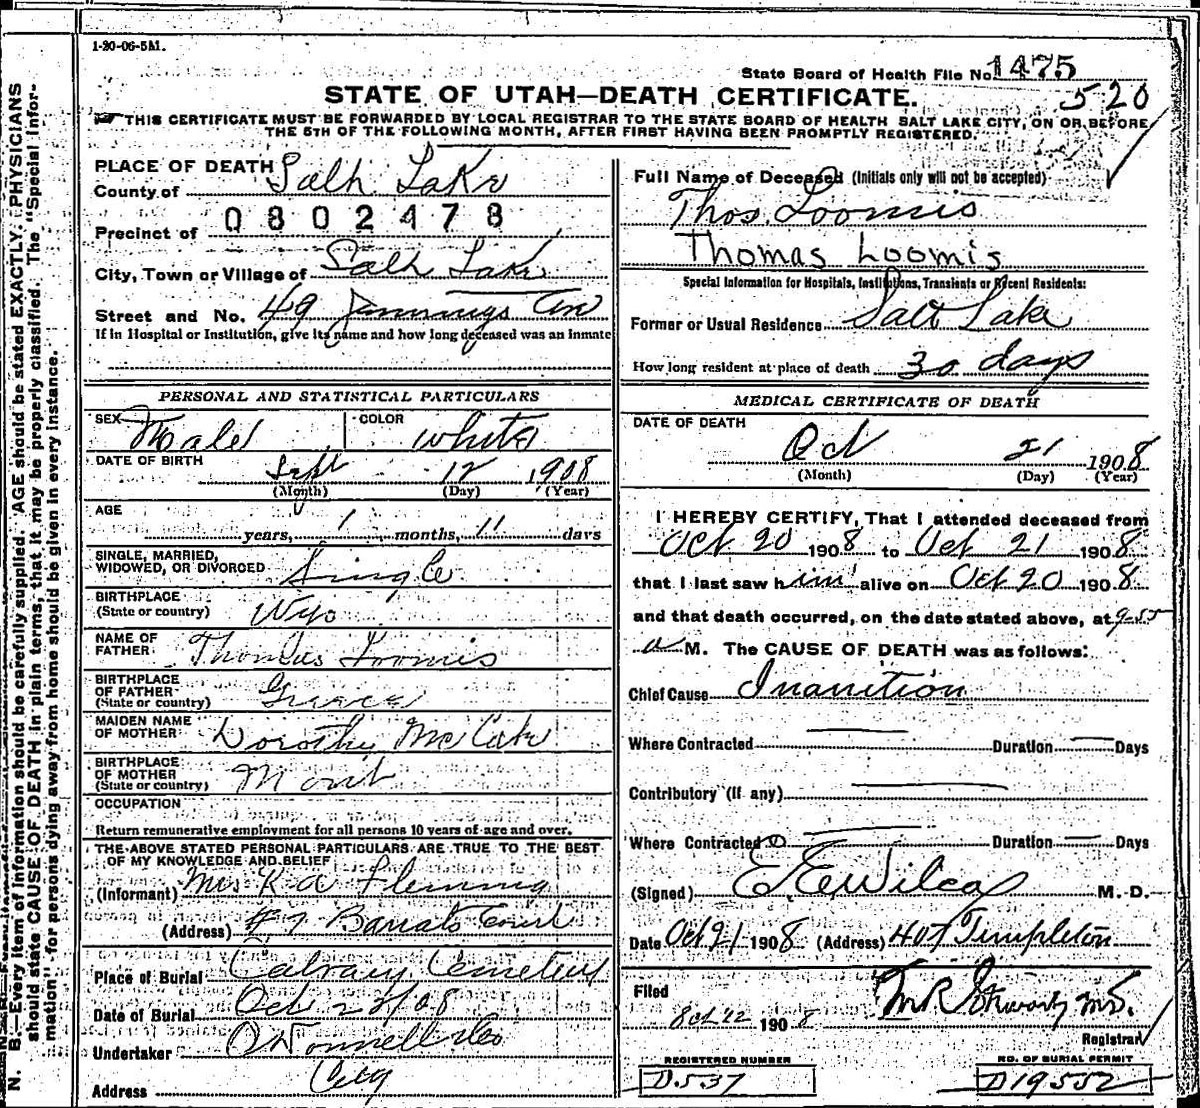 1-20-06-5M.
State Board of Health File No. 1475
520
STATE OF UTAH—DEATH CERTIFICATE.
THIS CERTIFICATE MUST BE FORWARDED BY LOCAL REGISTRAR TO THE STATE BOARD OF HEALTH SALT LAKE CITY, ON OR BEFORE
THE 5TH OF THE FOLLOWING MONTH, AFTER FIRST HAVING BEEN PROMPTLY REGISTERED.
PLACE OF DEATH
County of Salt Lake
0802478
Precinct of
City, Town or Village of Salt Lake
Street and No. 49 Jennings Av
If in Hospital or Institution, give its name and how long deceased was an inmate
PERSONAL AND STATISTICAL PARTICULARS
SEX Male COLOR White
DATE OF BIRTH Sept 12 1908
(Month) (Day) (Year)
AGE
years, 1 months, 11 days
SINGLE, MARRIED,
WIDOWED, OR DIVORCED Single
BIRTHPLACE
(State or country) Wyo
NAME OF
FATHER Thomas Loomis
BIRTHPLACE
OF FATHER
(State or country) Greece
MAIDEN NAME
OF MOTHER Dorothy McCabe
BIRTHPLACE
OF MOTHER
(State or country) Mont
OCCUPATION
Return remunerative employment for all persons 10 years of age and over.
THE ABOVE STATED PERSONAL PARTICULARS ARE TRUE TO THE BEST
OF MY KNOWLEDGE AND BELIEF
(Informant) Mrs K A Fleming
(Address) #7 Court
Place of Burial Calvary Cemetery
Date of Burial Oct 22/08
Undertaker O'Donnell &Co
Address City
Full Name of Deceased (Initials only will not be accepted)
Thos. Loomis
Thomas Loomis
Special Information for Hospitals, Institutions, Transients or Recent Residents:
Former or Usual Residence Salt Lake
How long resident at place of death 30 days
MEDICAL CERTIFICATE OF DEATH
DATE OF DEATH
Oct 21 1908
(Month) (Day) (Year)
I HEREBY CERTIFY, That I attended deceased from
Oct 20 1908 to Oct 21 1908
that I last saw him alive on Oct 20 1908
and that death occurred, on the date stated above, at 9-55
a M. The CAUSE OF DEATH was as follows:
Chief Cause Inanition
Where Contracted Duration Days
Contributory (if any)
Where Contracted Duration Days
(Signed) E E Wilcox M. D.
Date Oct 21 1908 (Address) 407 Templeton
Filed
Oct 22 1908 M.D.
Registrar
REGISTERED NUMBER
D537
NO. OF BURIAL PERMIT
D19552
N. B.—Every item of information should be carefully supplied. AGE should be stated EXACTLY. PHYSICIANS
should state CAUSE OF DEATH in plain terms, that it may be properly classified. The "Special Infor-
mation" for persons dying away from home should be given in every instance.